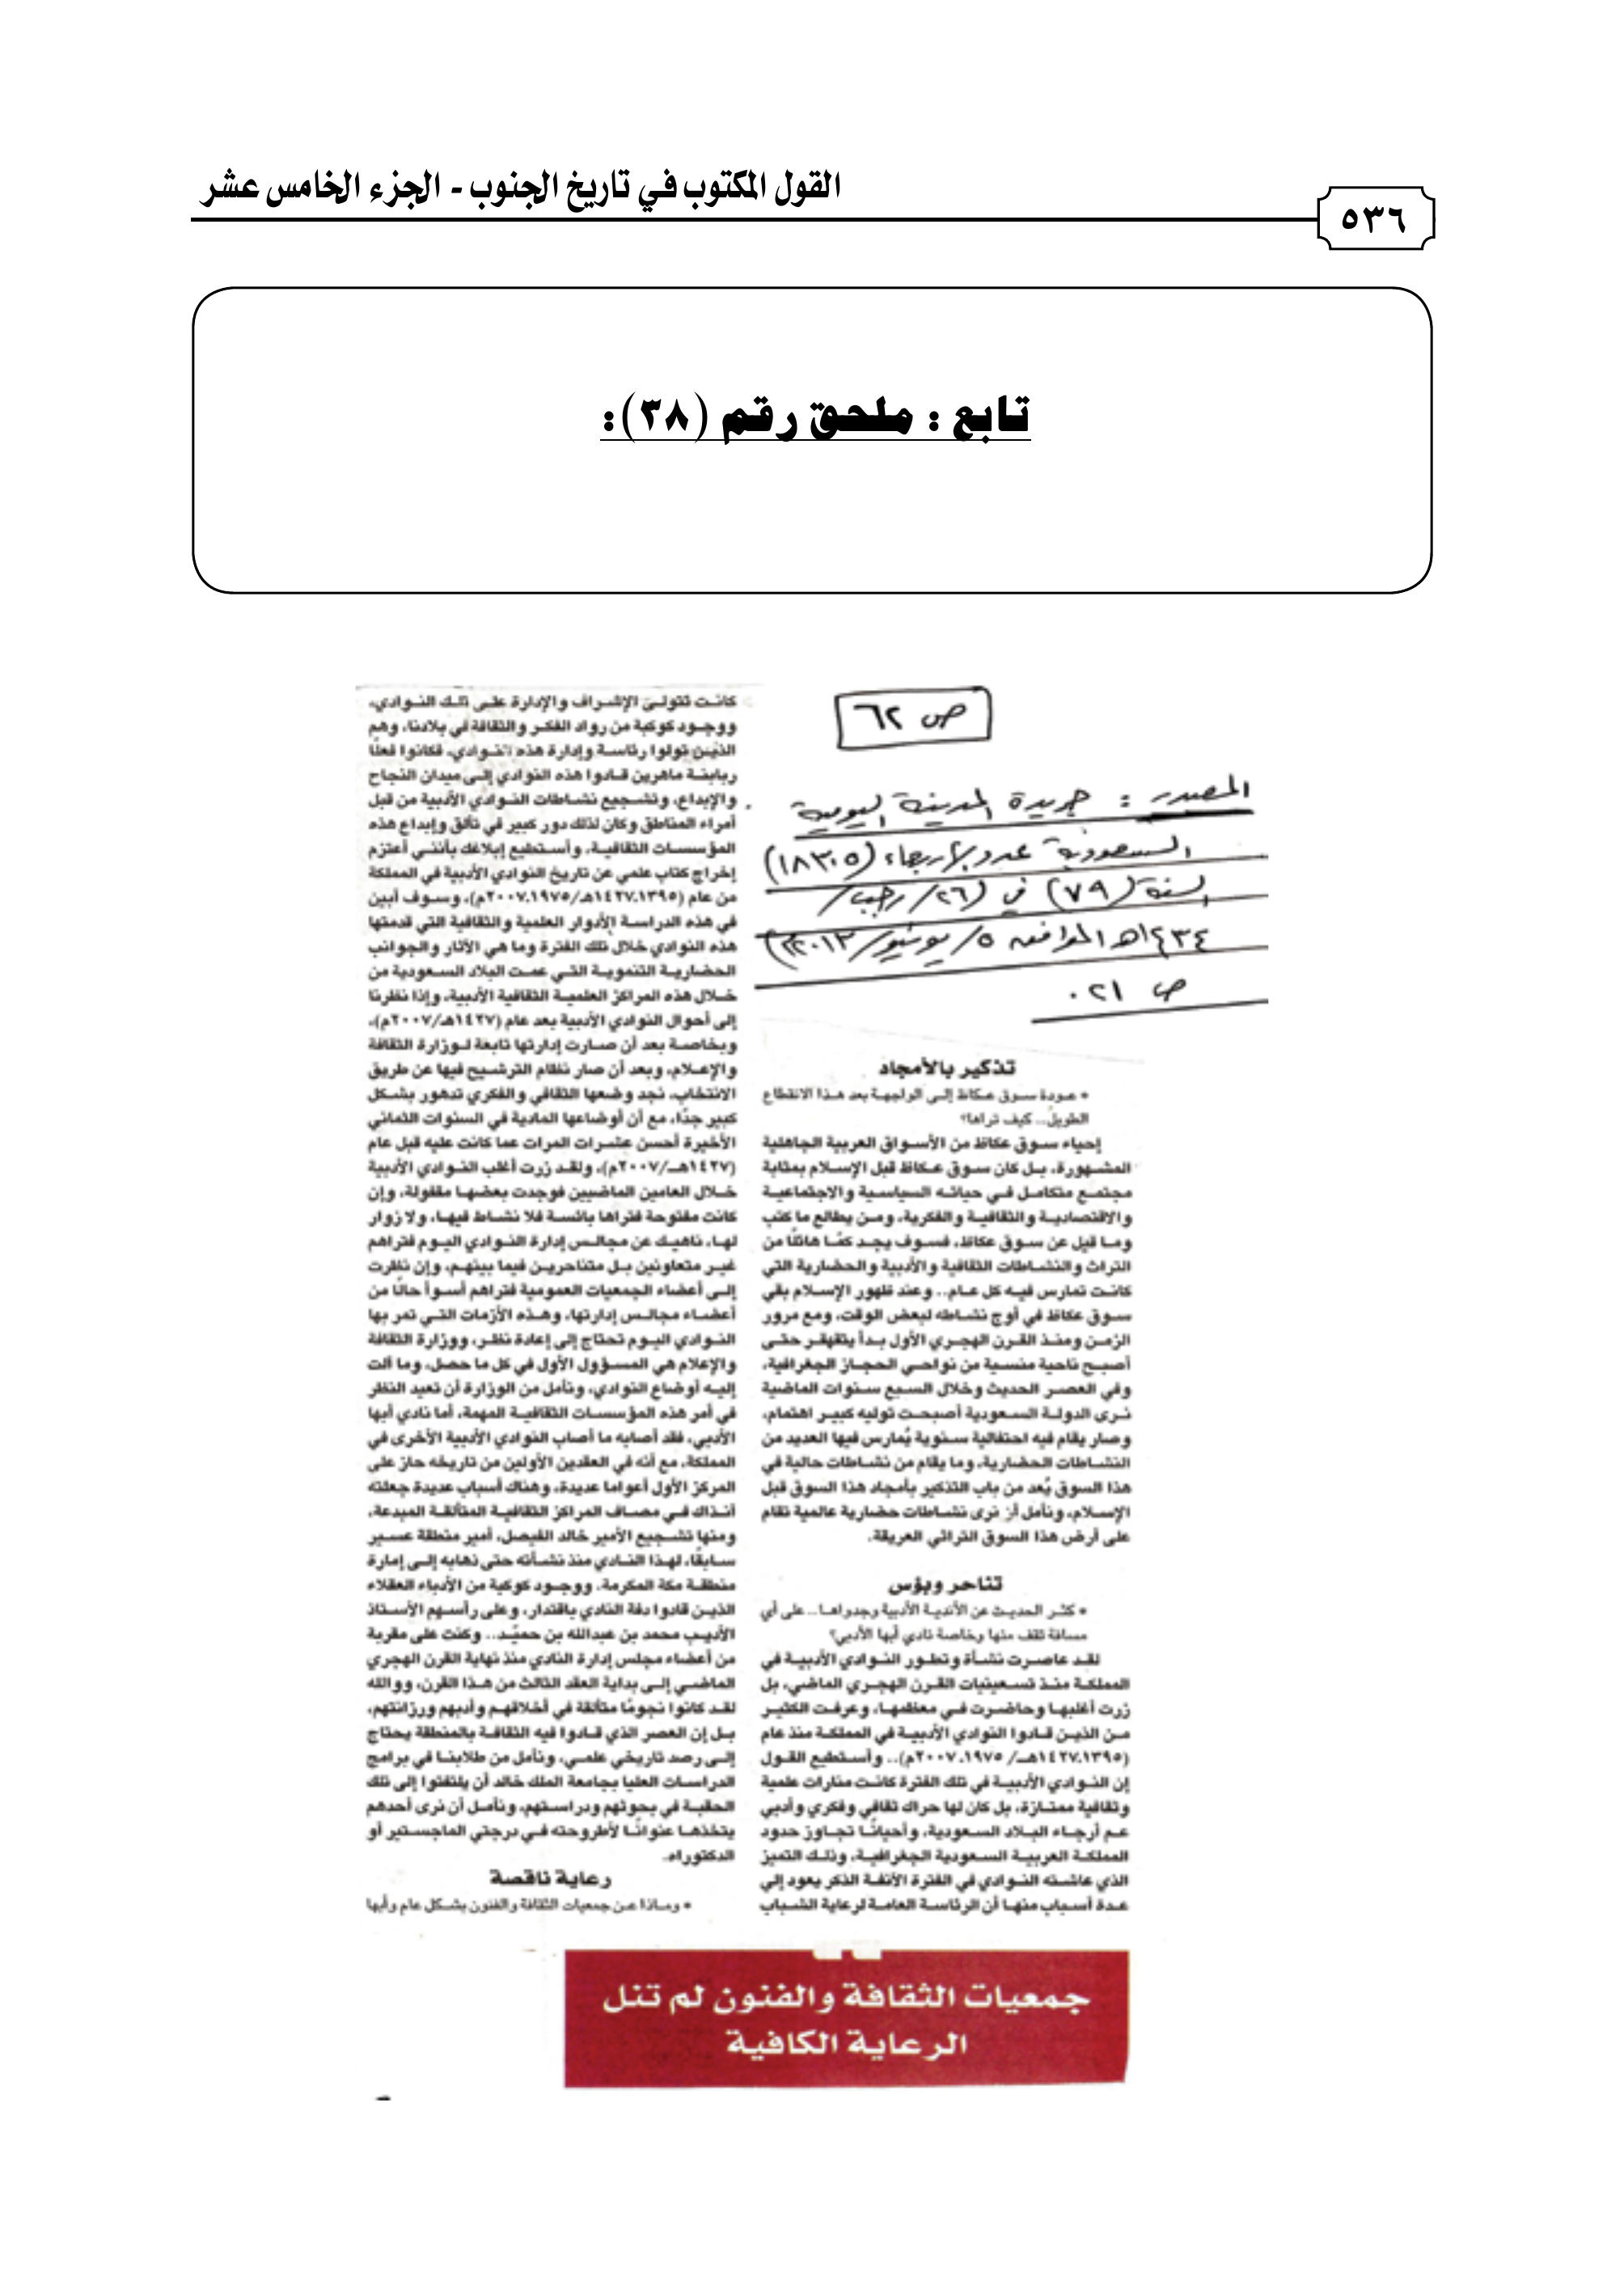 القول المكتوب في تاريخ الجنوب - الجزء الخامس عشر
٥٣٦
تابع : ملحق رقم (٣٨):
ص ٦٢
المصدر : جريدة المدينة اليومية
السعودية عدد الأربعاء (١٨٣٠٥)
السنة (٧٩) في (٢٦/ رجب/
١٤٣٤هـ الموافق ٥/ يونيو/ ٢٠١٣م)
ص ٢١.
تذكير بالأمجاد
• عودة سوق عكاظ إلى الواجهة بعد هذا الانقطاع
الطويل.. كيف تراها؟
إحياء سوق عكاظ من الأسواق العربية الجاهلية
المشهورة، بل كان سوق عكاظ قبل الإسلام بمثابة
مجتمع متكامل في حياته السياسية والاجتماعية
والاقتصادية والثقافية والفكرية، ومن يطالع ما كتب
وما قيل عن سوق عكاظ، فسوف يجد كمًا هائلًا من
التراث والنشاطات الثقافية والأدبية والحضارية التي
كانت تمارس فيه كل عام.. وعند ظهور الإسلام بقي
سوق عكاظ في أوج نشاطه لبعض الوقت، ومع مرور
الزمن ومنذ القرن الهجري الأول بدأ يتقهقر حتى
أصبح ناحية منسية من نواحي الحجاز الجغرافية،
وفي العصر الحديث وخلال السبع سنوات الماضية
نرى الدولة السعودية أصبحت توليه كبير اهتمام،
وصار يقام فيه احتفالية سنوية يُمارس فيها العديد من
النشاطات الحضارية، وما يقام من نشاطات حالية في
هذا السوق يُعد من باب التذكير بأمجاد هذا السوق قبل
الإسلام، ونأمل أن نرى نشاطات حضارية عالمية تقام
على أرض هذا السوق التراثي العريقة.
تناحر وبؤس
• كثر الحديث عن الأندية الأدبية وجدواها.. على أي
مسافة تقف منها وخاصة نادي أبها الأدبي؟
لقد عاصرت نشأة وتطور النوادي الأدبية في
المملكة منذ تسعينيات القرن الهجري الماضي، بل
زرت أغلبها وحاضرت في معظمها، وعرفت الكثير
من الذين قادوا النوادي الأدبية في المملكة منذ عام
(١٣٩٥ـ١٤٢٧هـ/ ١٩٧٥ـ٢٠٠٧م).. وأستطيع القول
إن النوادي الأدبية في تلك الفترة كانت منارات علمية
وثقافية ممتازة، بل كان لها حراك ثقافي وفكري وأدبي
عم أرجاء البلاد السعودية، وأحيانًا تجاوز حدود
المملكة العربية السعودية الجغرافية، وذلك التميز
الذي عاشته النوادي في الفترة الآنفة الذكر يعود إلى
عدة أسباب منها أن الرئاسة العامة لرعاية الشباب
كانت تتولى الإشراف والإدارة على تلك النوادي،
ووجود كوكبة من رواد الفكر والثقافة في بلادنا، وهم
الذين تولوا رئاسة وإدارة هذه النوادي، فكانوا فعلًا
ربابنة ماهرين قادوا هذه النوادي إلى ميدان النجاح
والإبداع، وتشجيع نشاطات النوادي الأدبية من قبل
أمراء المناطق وكان لذلك دور كبير في تألق وإبداع هذه
المؤسسات الثقافية، وأستطيع إبلاغك بأنني أعتزم
إخراج كتاب علمي عن تاريخ النوادي الأدبية في المملكة
من عام (١٣٩٥ـ١٤٢٧هـ/١٩٧٥ـ٢٠٠٧م)، وسوف أبين
في هذه الدراسة الأدوار العلمية والثقافية التي قدمتها
هذه النوادي خلال تلك الفترة وما هي الآثار والجوانب
الحضارية التنموية التي عمت البلاد السعودية من
خلال هذه المراكز العلمية الثقافية الأدبية، وإذا نظرنا
إلى أحوال النوادي الأدبية بعد عام (١٤٢٧هـ/٢٠٠٧م)،
وبخاصة بعد أن صارت إدارتها تابعة لوزارة الثقافة
والإعلام، وبعد أن صار نظام الترشيح فيها عن طريق
الانتخاب، نجد وضعها الثقافي والفكري تدهور بشكل
كبير جدًا، مع أن أوضاعها المادية في السنوات الثماني
الأخيرة أحسن عشرات المرات عما كانت عليه قبل عام
(١٤٢٧هـ/٢٠٠٧م)، ولقد زرت أغلب النوادي الأدبية
خلال العامين الماضيين فوجدت بعضها مقفولة، وإن
كانت مفتوحة فتراها بائسة فلا نشاط فيها، ولا زوار
لها، ناهيك عن مجالس إدارة النوادي اليوم فتراهم
غير متعاونين بل متناحرين فيما بينهم، وإن نظرت
إلى أعضاء الجمعيات العمومية فتراهم أسوأ حالًا من
أعضاء مجالس إدارتها، وهذه الأزمات التي تمر بها
النوادي اليوم تحتاج إلى إعادة نظر، ووزارة الثقافة
والإعلام هي المسؤول الأول في كل ما حصل، وما آلت
إليه أوضاع النوادي، ونأمل من الوزارة أن تعيد النظر
في أمر هذه المؤسسات الثقافية المهمة، أما نادي أبها
الأدبي، فقد أصابه ما أصاب النوادي الأدبية الأخرى في
المملكة، مع أنه في العقدين الأولين من تاريخه حاز على
المركز الأول أعواما عديدة، وهناك أسباب عديدة جعلته
آنذاك في مصاف المراكز الثقافية المتألقة المبدعة،
ومنها تشجيع الأمير خالد الفيصل، أمير منطقة عسير
سابقًا، لهذا النادي منذ نشأته حتى ذهابه إلى إمارة
منطقة مكة المكرمة، ووجود كوكبة من الأدباء العقلاء
الذين قادوا دفة النادي باقتدار، وعلى رأسهم الأستاذ
الأديب محمد بن عبدالله بن حميّد.. وكنت على مقربة
من أعضاء مجلس إدارة النادي منذ نهاية القرن الهجري
الماضي إلى بداية العقد الثالث من هذا القرن، ووالله
لقد كانوا نجومًا متألقة في أخلاقهم وأدبهم ورزانتهم،
بل إن العصر الذي قادوا فيه الثقافة بالمنطقة يحتاج
إلى رصد تاريخي علمي، ونأمل من طلابنا في برامج
الدراسات العليا بجامعة الملك خالد أن يلتفتوا إلى تلك
الحقبة في بحوثهم ودراستهم، ونأمل أن نرى أحدهم
يتخذها عنوانًا لأطروحته في درجتي الماجستير أو
الدكتوراه.
رعاية ناقصة
• وماذا عن جمعيات الثقافة والفنون بشكل عام وأبها
جمعيات الثقافة والفنون لم تنل
الرعاية الكافية